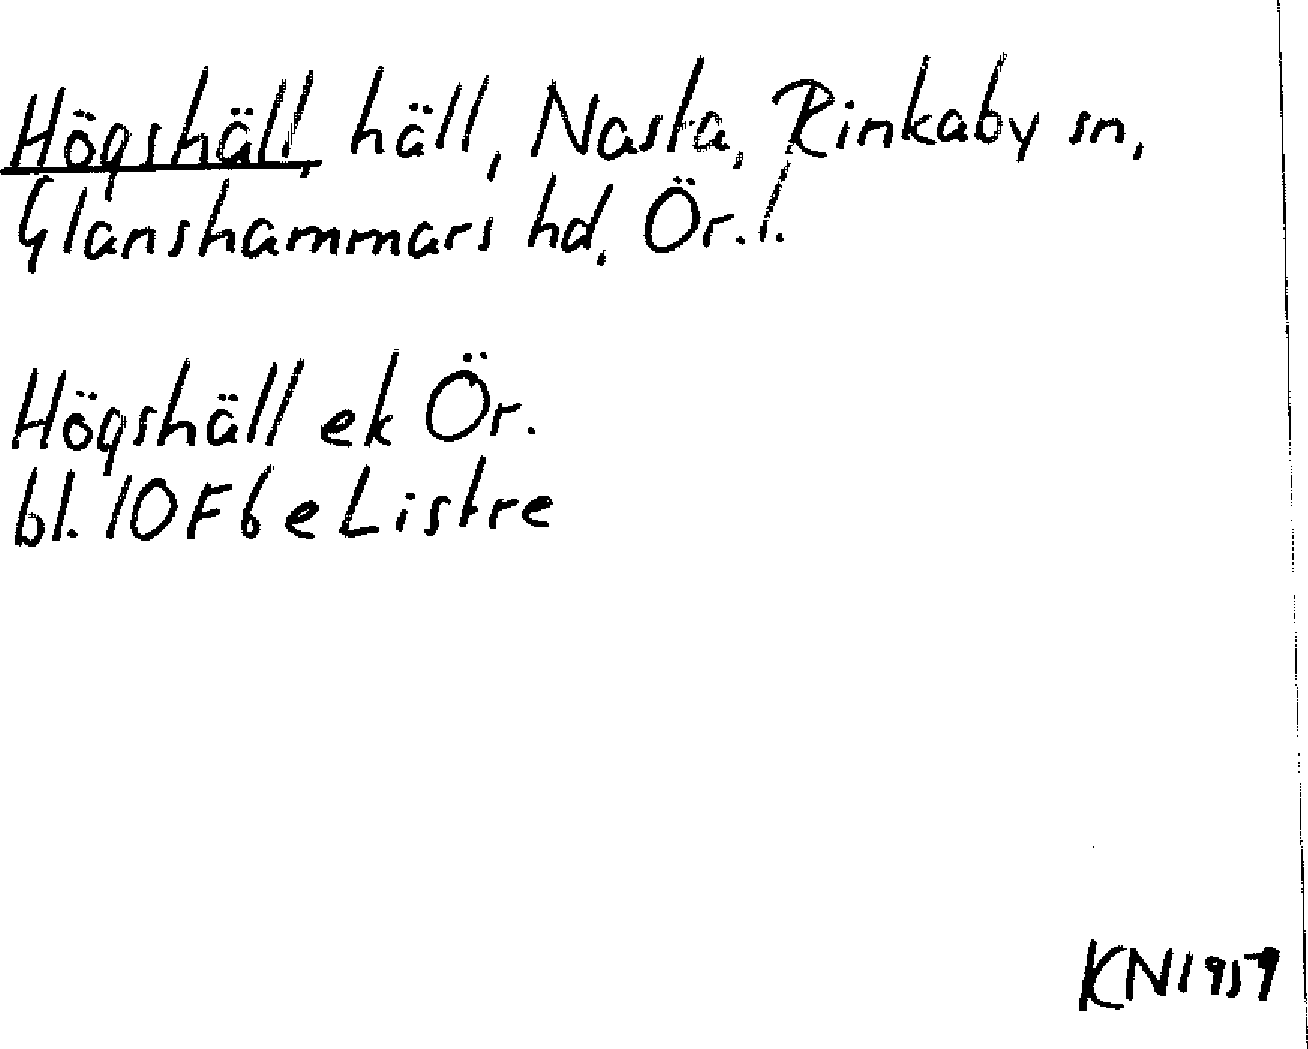 Högshäll, häll, Nasta, Rinkaby sn,
Glanshammars hd, Ör. l.
Högshäll ek Ör.
bl. 10F6e Listre